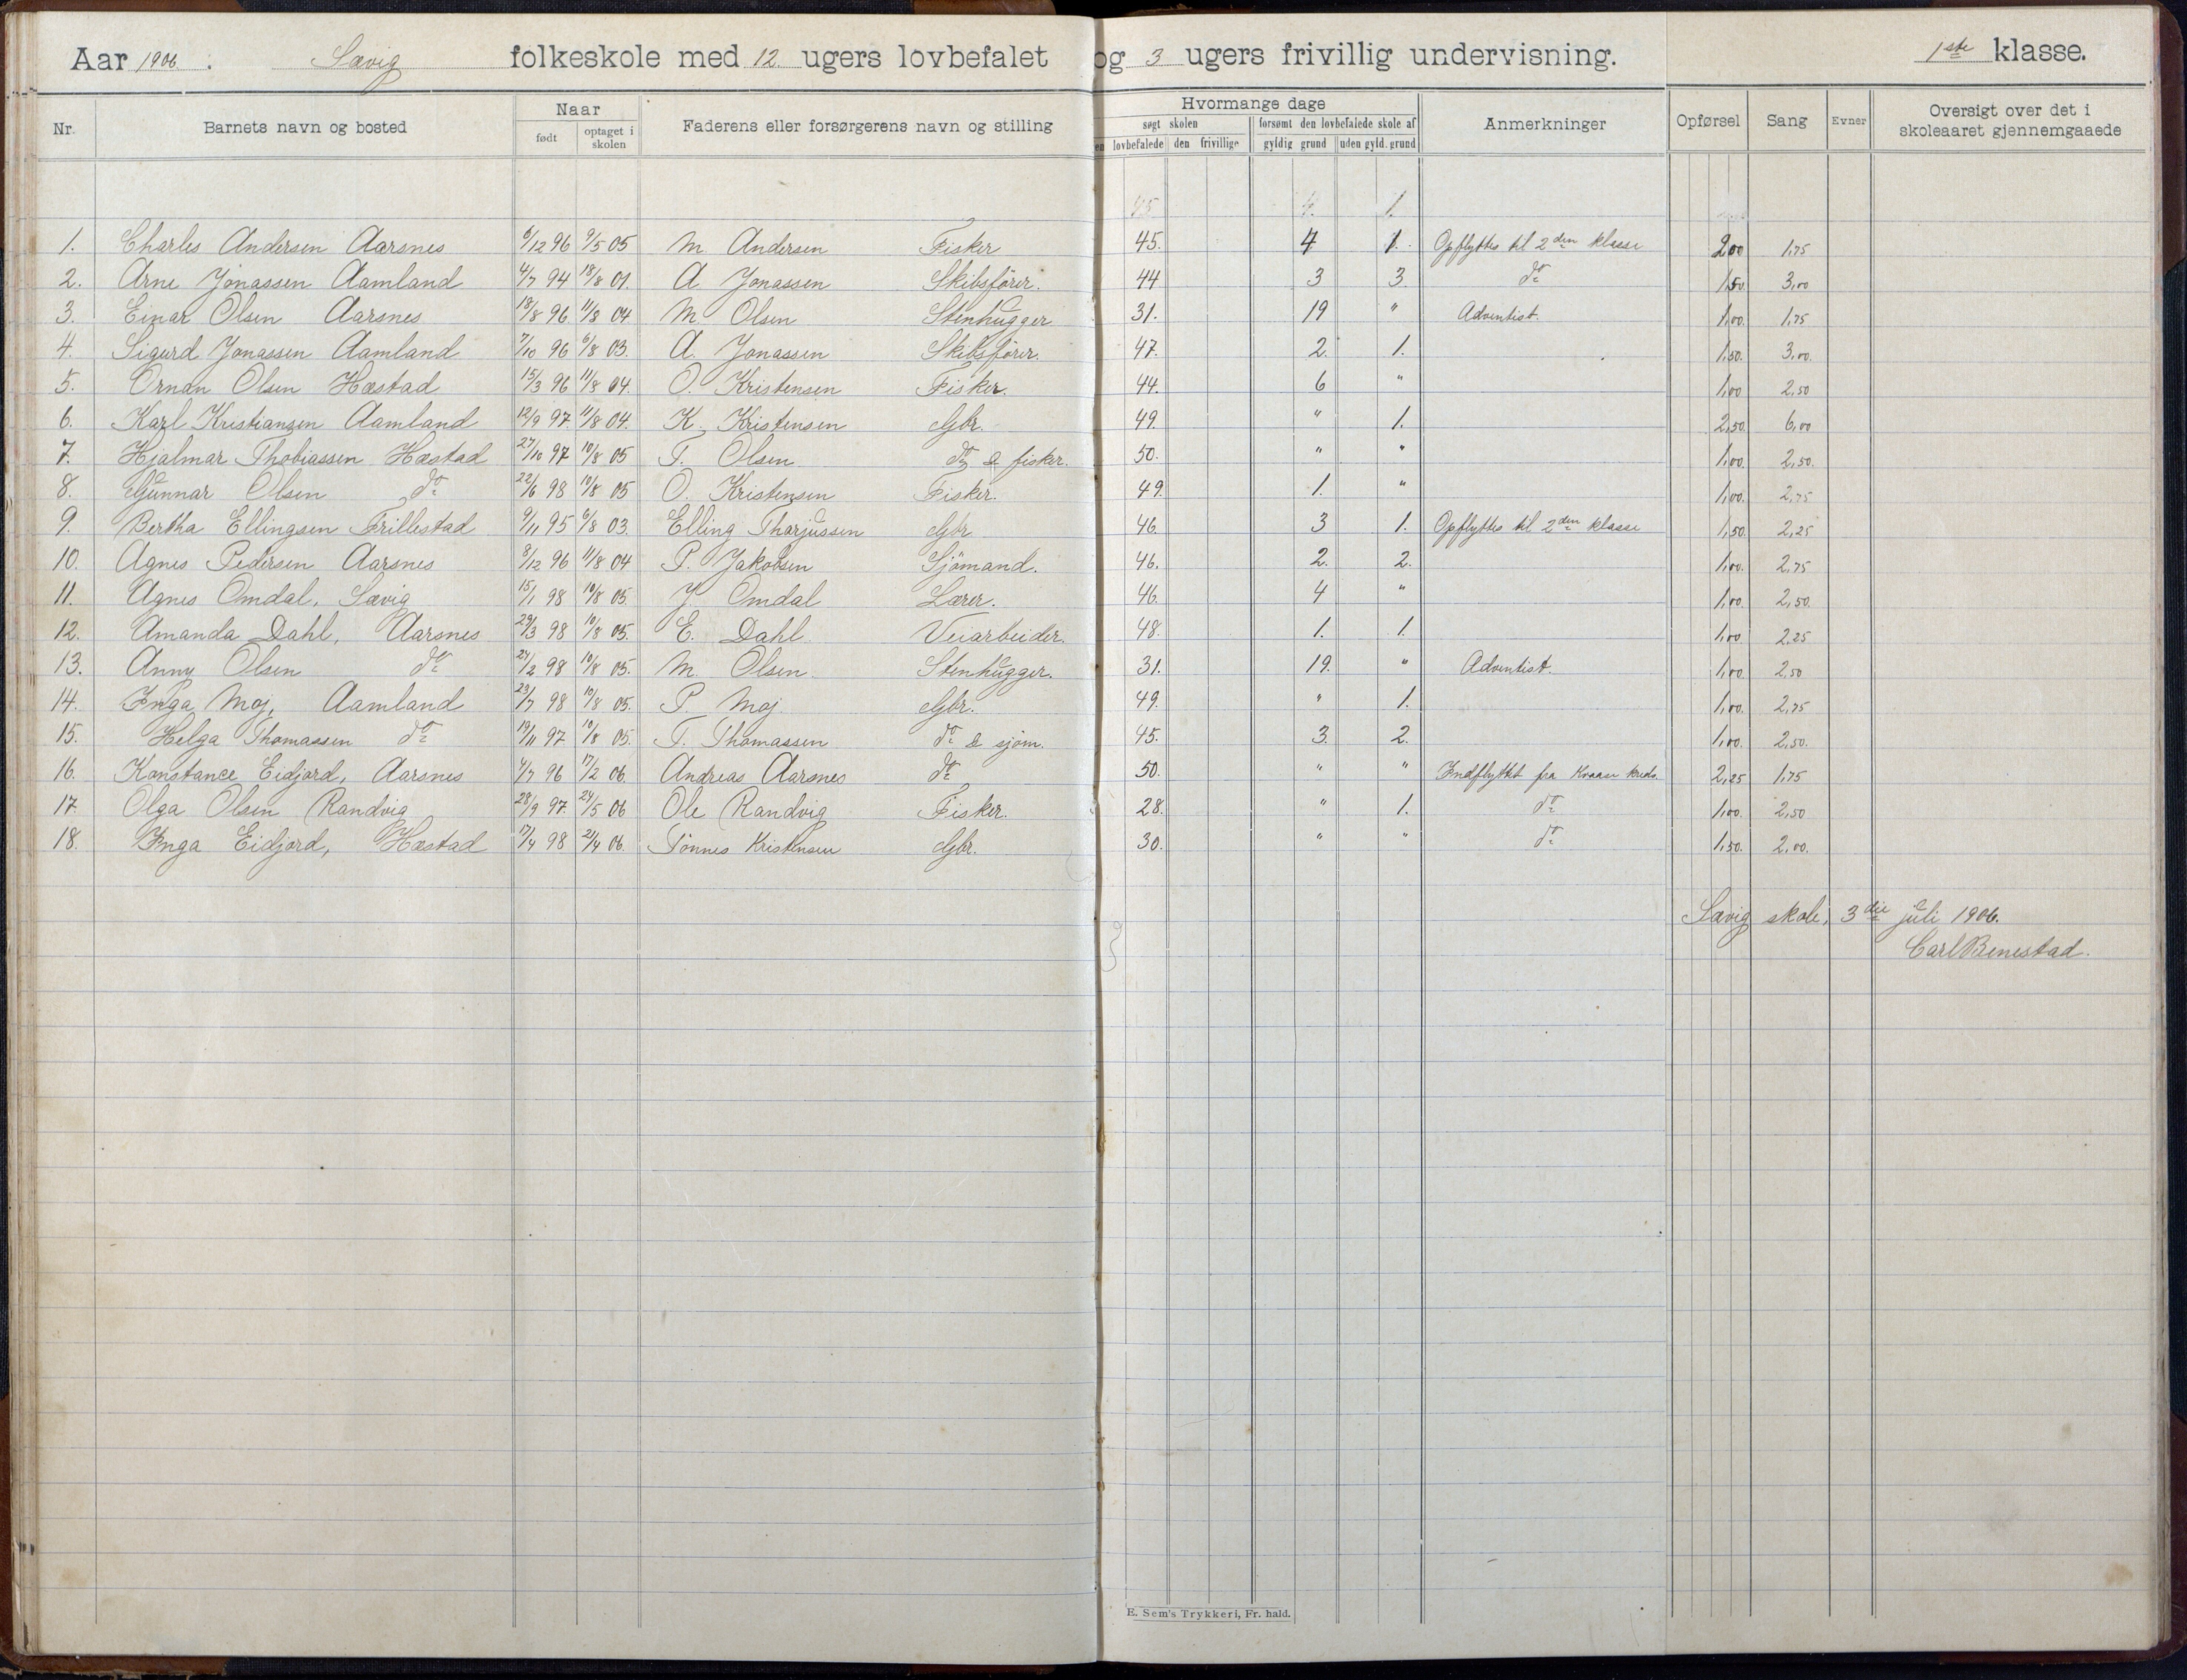 Aar 1906. Sævig folkeskole med 12 ugers lovbefalet og 3 ugers frivillig undervisning. 1ste klasse.
Nr. Barnets navn og bosted Naar født optaget i skolen Faderens eller forsørgerens navn og stilling Hvormange dage søgt skolen lovbefalede den frivillige forsømt den lovbefalede skole af gyldig grund uden gyld. grund Anmerkninger Opførsel Sang Evner Oversigt over det i skoleaaret gjennemgaaede
45 4. 1.
1. Charles Andersen Aarsnes 6/12 96 9/5 05 M Andersen Fisker 45. 4 1. Opflyttes til 2den klasse 2,00 1,75
2. Arne Jonassen Aamland 4/7 94 18/8 01. A Jonassen Skibsfører. 44 3 3. do 1,50. 3,00
3. Einar Olsen Aarsnes 18/8 96 11/8 04 M Olsen Stenhugger 31. 19 " Adventist. 1,00. 1,75
4. Sigurd Jonassen Aamland 7/10 96 6/8 03. A. Jonassen Skibsfører. 47. 2. 1. 1,50. 3,00.
5. Ornan Olsen Hæstad 15/3 96 11/8 04. O. Kristensen Fisker. 44. 6 " 1,00 2,50
6. Karl Kristiansen Aamland 12/9 97. 11/8 04. K. Kristensen Gbr. 49. " 1. 2,50. 6,00
7. Hjalmar Thobiassen Hæstad 27/10 97 10/8 05 T. Olsen do & fisker. 50. " " 1,00. 2,50.
8. Gunnar Olsen do 22/6 98 10/8 05 O. Kristensen Fisker. 49. 1. " 1,00. 2,75
9. Bertha Ellingsen Frillestad 9/11 95 6/8 03. Elling Tharjussen Gbr 46. 3 1. Opflyttes til 2den klasse 1,50. 2,25
10. Agnes Pedersen Aarsnes 8/12 96 11/8 04 P. Jakobsen Sjømand. 46. 2. 2. 1,00. 2,75
11. Agnes Omdal, Sævig 15/1 98 10/8 05. J. Omdal Lærer. 46. 4 " 1,00. 2,50.
12. Amanda Dahl, Aarsnes 29/3 98 10/8 05. E. Dahl. Veiarbeider. 48. 1. 1. 1,00 2,25
13. Anny Olsen do 24/2 98 10/8 05. M. Olsen. Stenhugger. 31. 19. " Adventist. 1,00. 2,50
14. Inga Moj, Aamland 23/7 98 10/8 05. P. Moj. Gbr. 49. " 1. 1,00. 2,75
15. Helga Thomassen do 19/11 97 10/8 05. T. Thomassen do & sjøm. 45. 3. 2. 1,00. 2,50.
16. Konstance Eidjord, Aarsnes 4/7 96 17/2 06. Andreas Aarsnes do 50. " " Indflyttet fra Kvaase kreds. 2,25 1,75
17. Olga Olsen Randvig 28/9 97. 24/5 06 Ole Randvig Fisker. 28. " 1. do 1,00. 2,50
18. Inga Eidjord, Hæstad 17/4 98 21/4 06. Tønnes Kristensen Gbr. 30. " " do 1,50. 2,00.
Sævig skole, 3die juli 1906.
Carl Benestad.
E. Sem's Trykkeri, Fr.hald.